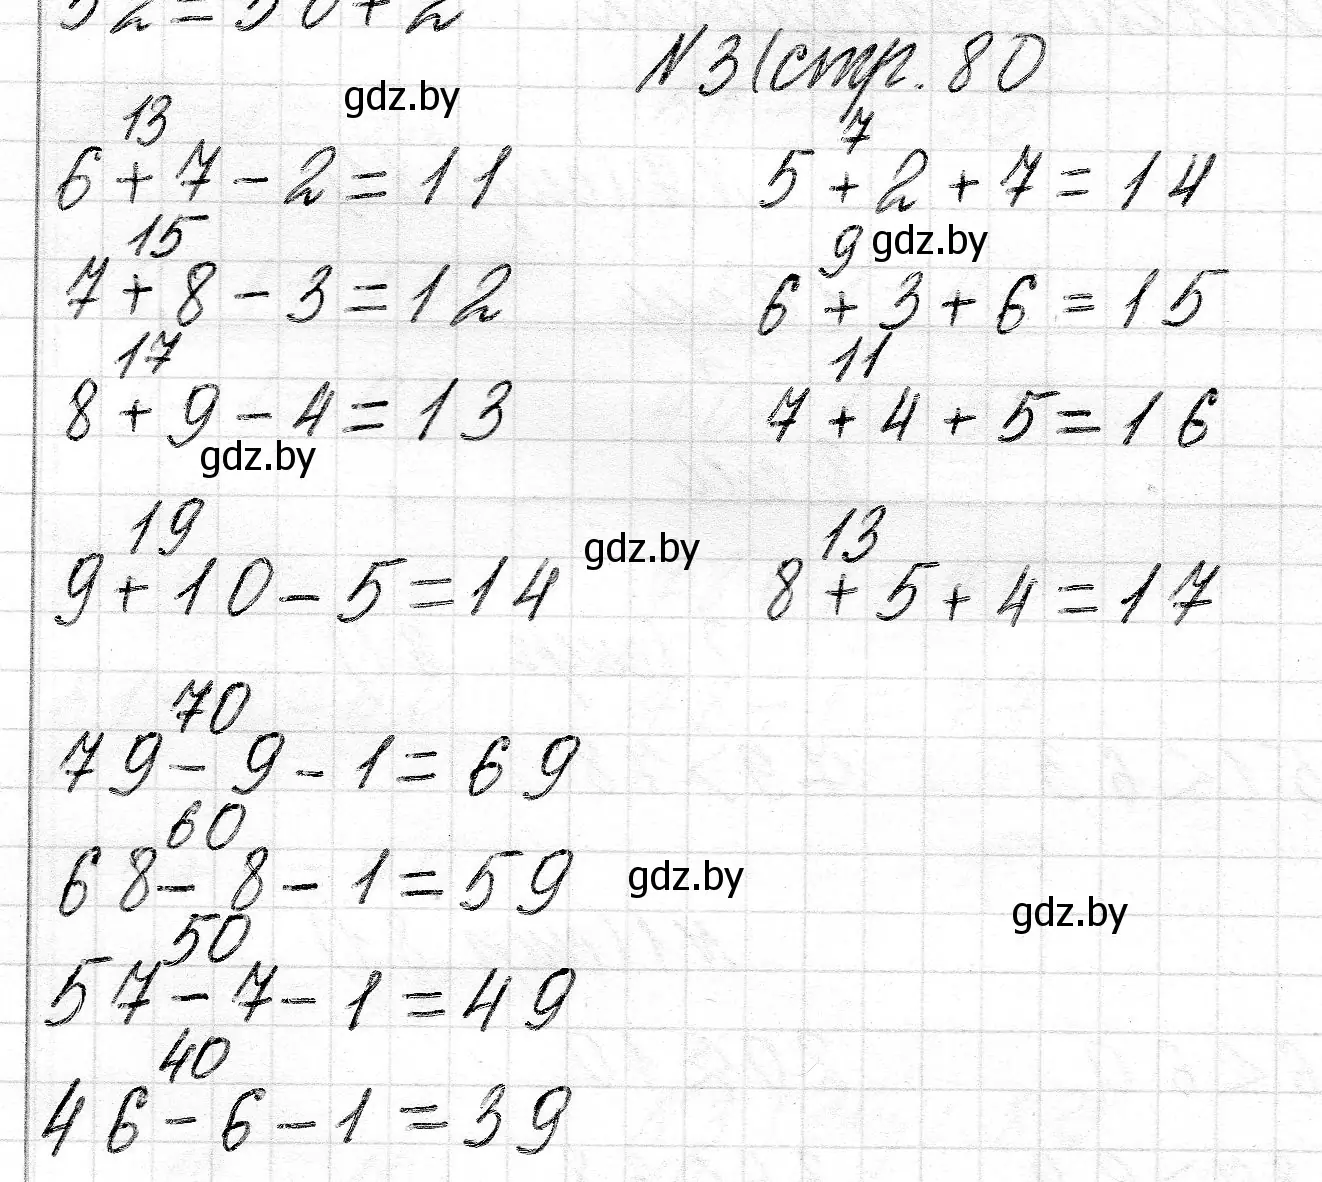 52=50+2
N3(стр. 80
gdz.by
13 7
6+7-2=11 5+2+7=14
15 9 gdz.by
7+8-3=12 6+3+6=15
17 11
8+9-4=13 7+4+5=16
gdz.by
19 13
gdz.by
9+10-5=14 8+5+4=17
70
79-9-1=69
60
68-8-1=59
gdz.by
gdz.by
50
57-7-1=49
40
46-6-1=39